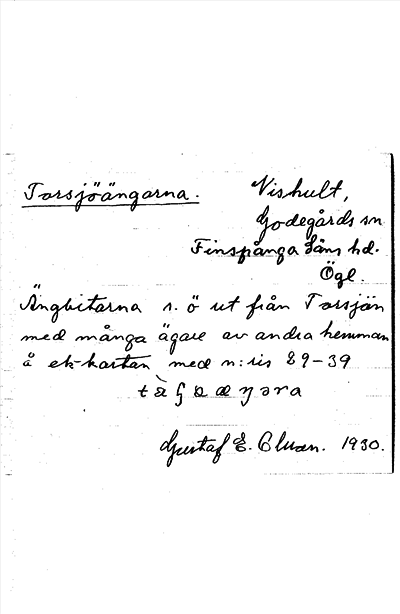 Torsjöängarna. Vishult,
Godegårds sn
Finspånga Läns hd.
Ögl.
Ängbitarna s. ö ut från Torsjön
med många ägare av andra hemman
å ek-kartan med n:ris 89-39
Gustaf E. 1930.